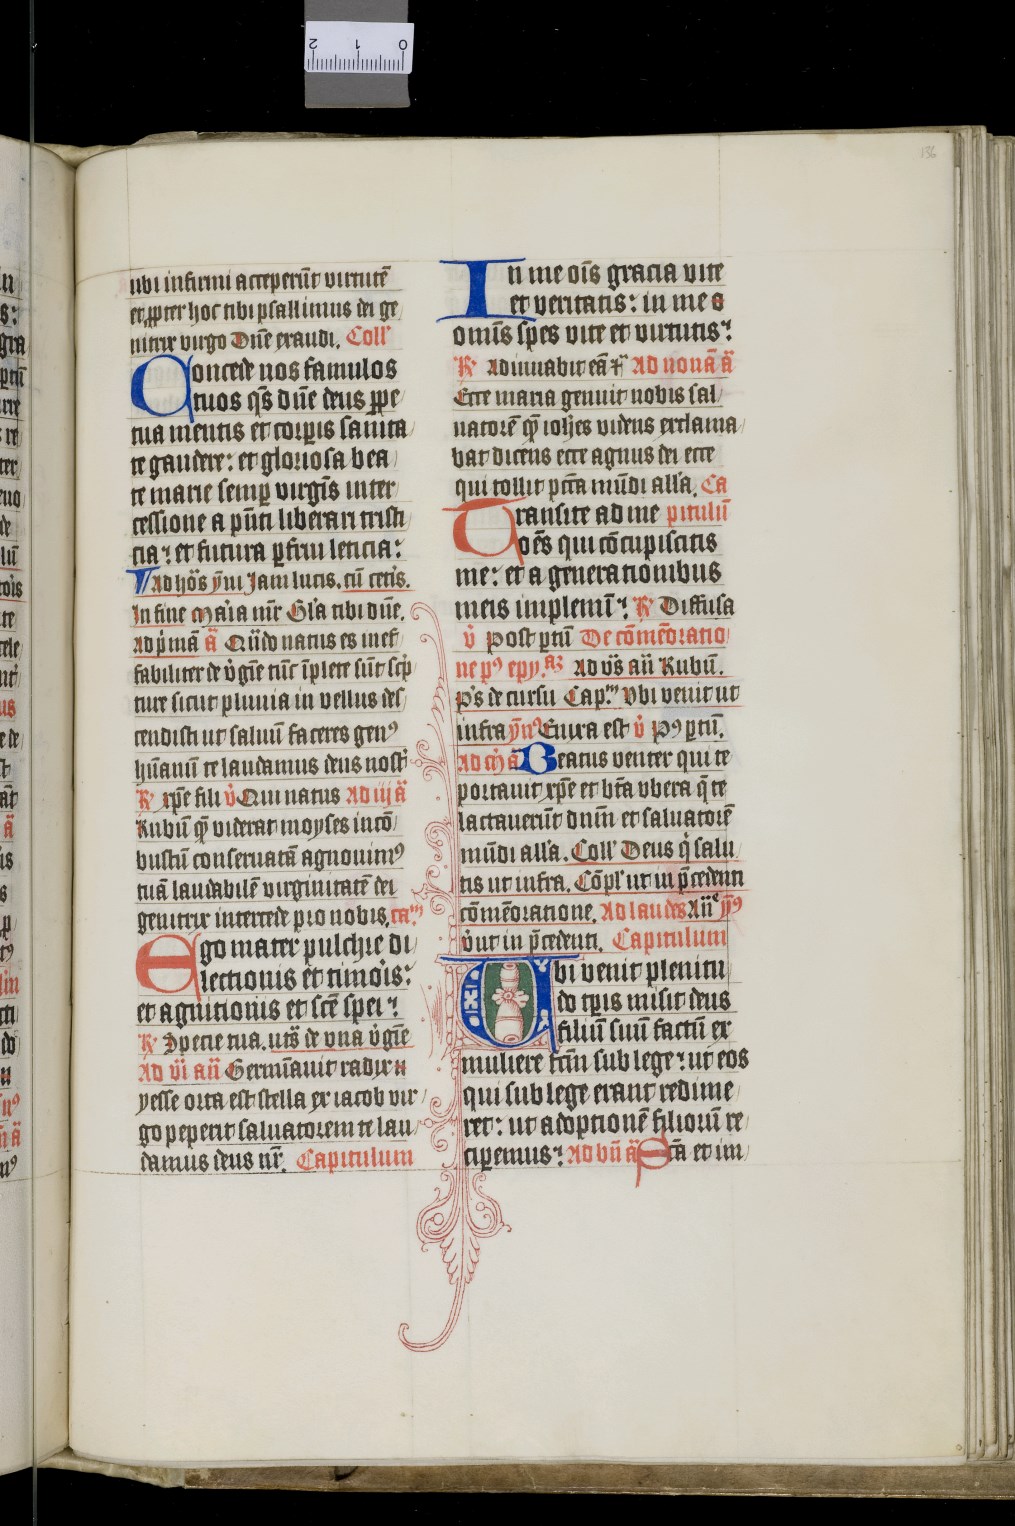 136
ubi infirmi acceperūt virtutē
et ꝓpter hoc tibi psallimus dei ge
nitrix virgo Dn̄e exaudi. Coll'
Concede nos famulos
tuos qs̄ dn̄e deus ꝑpe
tua mentis et corꝑis sanita
te gaudere: et gloriosa bea
te marie semꝑ virgīs inter
cessione a pn̄ti liberari tristi
cia: et futura ꝑfrui leticia:
Ad hōs ẏm̄ Jam lucis. cū cetīs.
In fine Maria mr̄ Gl'a tibi dn̄e.
Ad pimā ā Qn̄do natus es inef
fabiliter de v̓gīe tūc īplete sūt scp̄
ture sicut pluuia in vellus des
cendisti ut saluū faceres genꝰ
hūanū te laudamus deus nost'
R̄ xp̄e fili v̓ Qui natus Ad iij ā
Rubū qē viderat moyses incō
bustū conseruatā agnouimꝰ
tuā laudabilē virginitatē dei
genitrix intercede pro nobis. ca
Ego mater pulchre di
lectionis et timoīs:
et agnitionis et scē spei:
R̄ Specie tua. uts̄ de vna v̓gīe
Ad vi an̄ Germīauit radix
yesse orta est stella ex iacob vir
go peperit saluatorem te lau
damus deus nr̄. Capitulum
In me oīs gracia vite
et veritatis: in me
omīs spes vite et virtutis:
R̄ Adiuuabit eā Ad nonā ā
Ecce maria genuit nobis sal
uatorē quē iohes videns exclama
bat dicens ecce agnus dei ecce
qui tollit pctā mūdi all'a. Ca
Transite ad me pitulū
oēs qui cōcupiscitis
me: et a generationibus
meis implemī: R̄ Diffusa
v̓ Post ꝑtū De cōmēoratio
ne pꝰ epy. Ad vs̄ an̄ Rubū.
Ps̄ de cursu Cap. Vbi venit ut
infra ẏn̄ Enixa est v̓ Pꝰ ꝑtū.
Ad mā Beatus venter qui te
portauit xp̄e et bt̄a vbera q̄ te
lactauerūt dnm̄ et saluatorē
mūdi all'a. Coll' Deus q̄ salu
tis ut infra. Cōpl' ut in p̄cedenti
cōmēoratione. Ad laudes An̄
v̓ ut in p̄cedenti. Capitulum
Ubi venit plenitu
do tꝑis misit deus
filiū suū factū ex
muliere fctm̄ sub lege: ut eos
qui sub lege erant redime
ret: ut adoptionē filiorū re
cipemus: Ad bn̄ ā Sctā et im
2 1 0